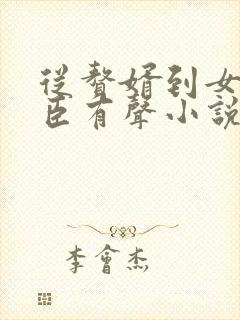 從贅婿到女
臣有聲小說
李會杰